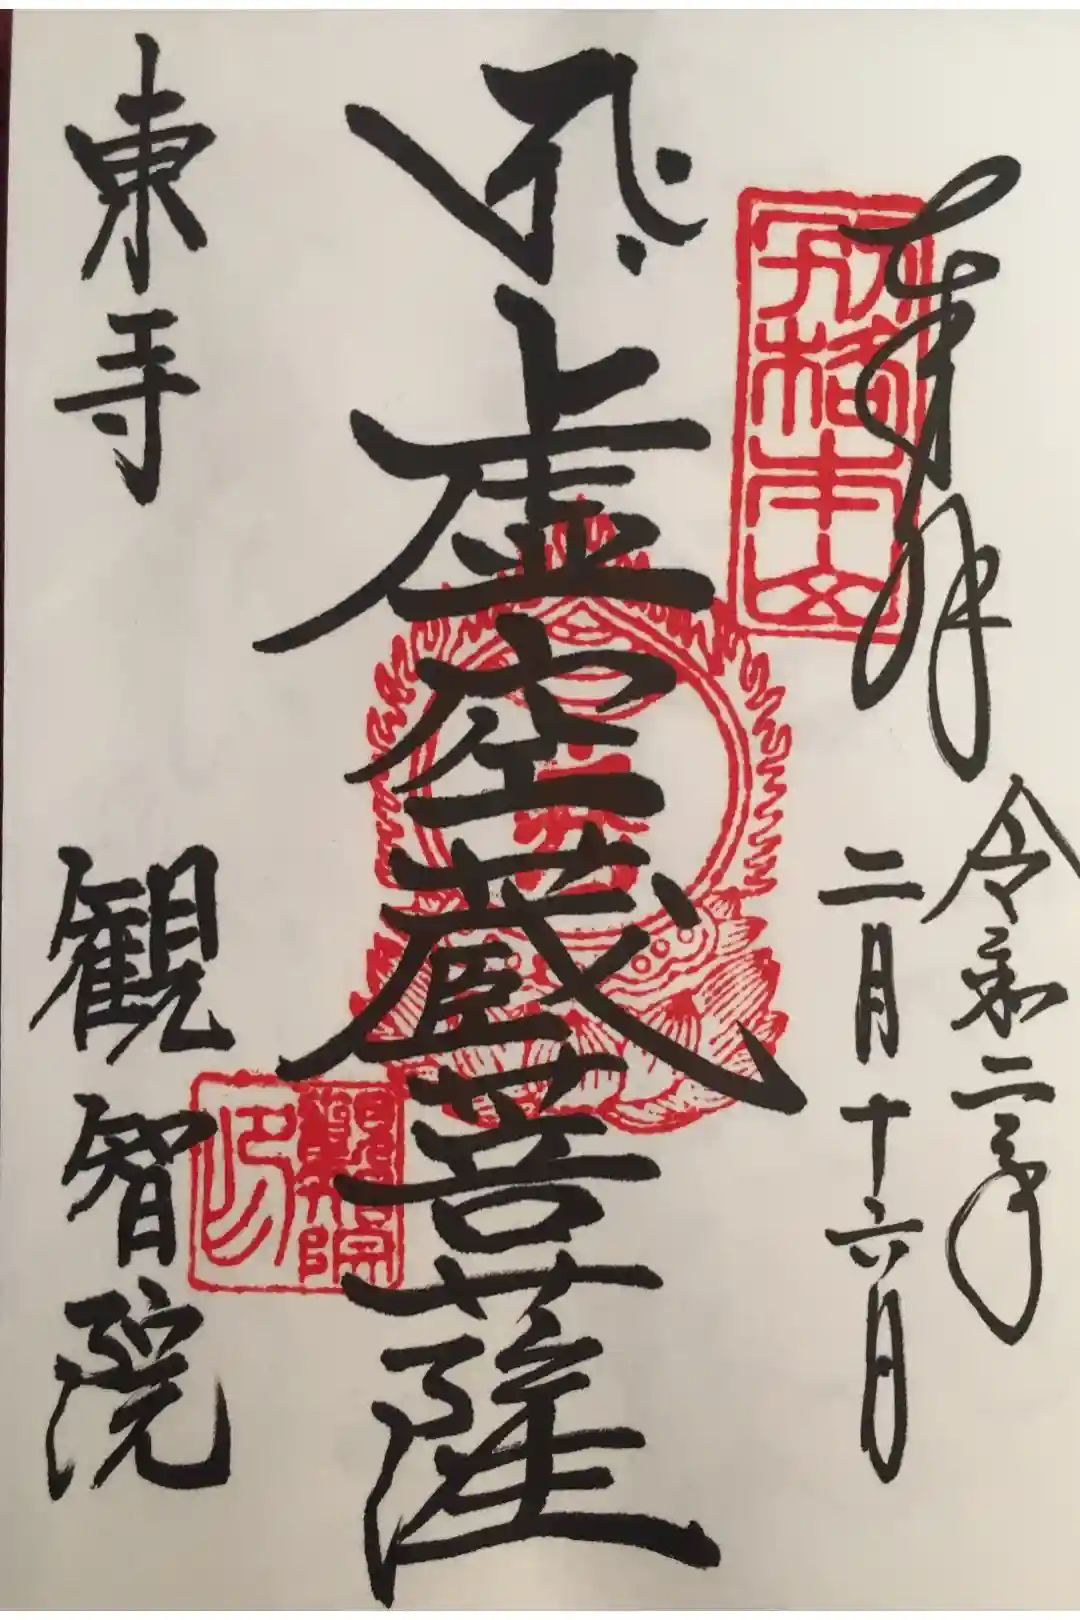 奉拝
別格本山
令和二年
二月十六日
虚空蔵菩薩
東寺 観智院